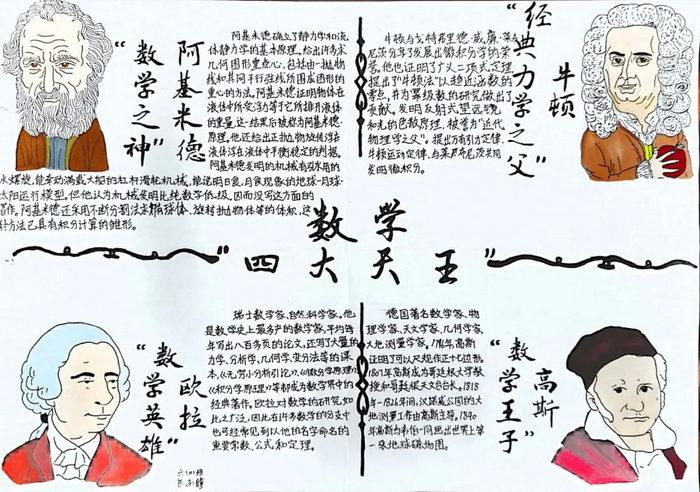 "数学之神"
阿基米德
阿基米德确立了静力学和流
体静力学的基本原理。给出许多求
几何图形重心，包括由一抛物
线和其网平行弦线所围成图形的
重心的方法。阿基米德证明物体在
液体中所受浮力等于它所排开液体
的重量，这一结果后被称为阿基米德
原理。他还给出正抛物旋转体浮在
液体中平衡稳定的判据。
阿基米德发明的机械有引水用的
水螺旋，能牵动满载大船的杠杆滑轮机械，能说明日食，月食现象的地球-月球-
太阳运行模型。但他认为机械发明比纯数学低级，因而没写这方面的
著作。阿基米德还采用不断分割法求椭球体、旋转抛物体等的体积，这
种方法已具有积分计算的雏形。
"经典力学之父"
牛顿
牛顿与戈特弗里德·威廉·莱
尼茨分享了发展出微积分学的荣
誉。他也证明了广义二项式定理，
提出了"牛顿法"以趋近函数的
零点，并为幂级数的研究做出了
贡献。发明反射式望远镜
和光的色散原理，被誉为"近代
物理学之父"。提出万有引力定律、
牛顿运动定律，与莱布尼茨共同
发明微积分。
数学
"四大天王"
"数学英雄"
欧拉
瑞士数学家，自然科学家。他
是数学史上最多产的数学家，平均每
年写出八百多页的论文，还写了大量的
力学、分析学、几何学、变分法等的课
本，《无穷小分析引论》、《微分学原理》、
《积分学原理》等都成为数学界中的
经典著作。欧拉对数学的研究如
此之广泛，因此在许多数学的分支中
也可经常见到以他的名字命名的
重要常数、公式和定理。
"数学王子"
高斯
德国著名数学家、物
理学家、天文学家、几何学家，
大地测量学家。1796年，高斯
证明了可以尺规作正十七边形。
1807年高斯成为哥廷根大学教
授和哥廷根天文台台长。1818
年-1826年间，汉诺威公国的大
地测量工作由高斯主导。1840
年高斯与韦伯一同画出世界上第
一张地球磁场图。